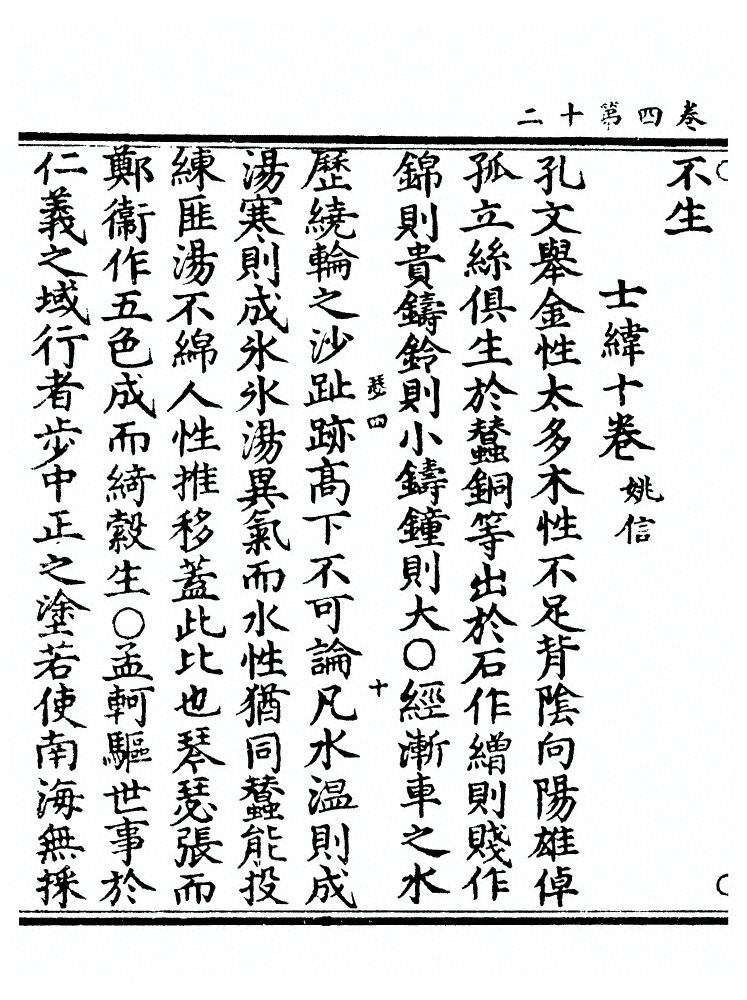 卷四第十二
不生
士緯十卷 姚信
孔文舉金性太多木性不足背陰向陽雄倬
孤立絲俱生於蠶銅等出於石作繒則賤作
錦則貴鑄鈴則小鑄鐘則大○經漸車之水
卷四 十
歷繞輪之沙趾跡高下不可論凡水温則成
湯寒則成氷氷湯異氣而水性猶同蠶能投
練匪湯不綿人性推移蓋此比也琴瑟張而
鄭衞作五色成而綺縠生○孟軻驅世事於
仁義之域行者步中正之塗若使南海無採